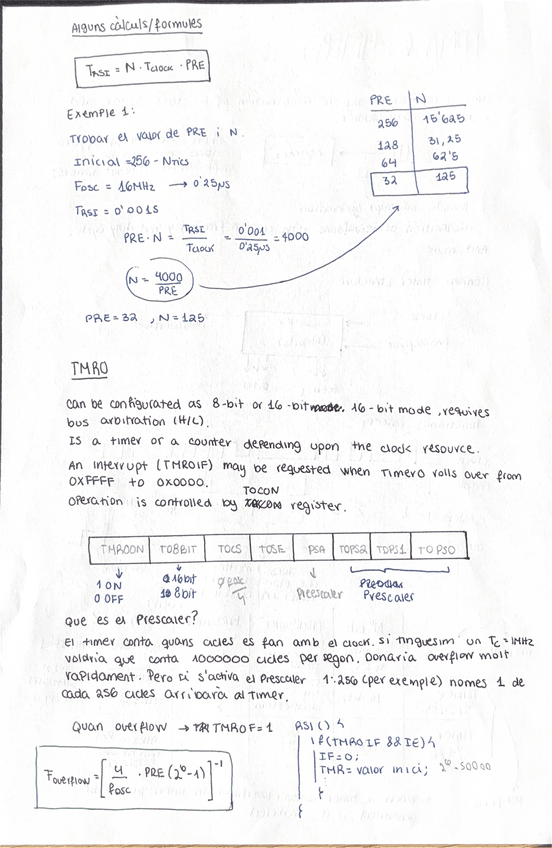 Alguns càlculs/formules
T_RSI = N · Tclock · PRE
Exemple 1:
Trobar el valor de PRE i N.
Inicial = 256 - Ntics
Fosc = 16MHz → 0'25µs
T_RSI = 0'001s
PRE · N = T_RSI / Tclock = 0'001 / 0'25µs = 4000
N = 4000 / PRE
PRE = 32 , N = 125
PRE N
256 15'625
128 31,25
64 62'5
32 125
TMR0
Can be configurated as 8-bit or 16-bit mode. 16-bit mode, requires
bus arbitration (H/L).
Is a timer or a counter depending upon the clock resource.
An interrupt (TMR0IF) may be requested when Timer0 rolls over from
0XFFFF to 0x0000.
Operation is controlled by T0CON register.
TMR0ON T08BIT T0CS T0SE PSA T0PS2 T0PS1 T0PS0
1 ON
0 OFF
0 16bit
1 8bit
Preescaler
Prescaler
Que es el Prescaler?
El timer conta quans cicles es fan amb el clock. Si tinguesim un Tc = 1MHz
voldria que conta 1000000 cicles per segon. Donaria overflow molt
rapidament. Pero si s'activa el Prescaler 1:256 (per exemple) nomes 1 de
cada 256 cicles arribarà al timer.
Quan overflow → TMR0F = 1
Foverflow = [4/fosc · PRE (2^16 - 1)]^-1
RSI () {
if (TMR0IF && IE) {
IF = 0;
TMR = valor inici; 2^16 - 50000
}
{